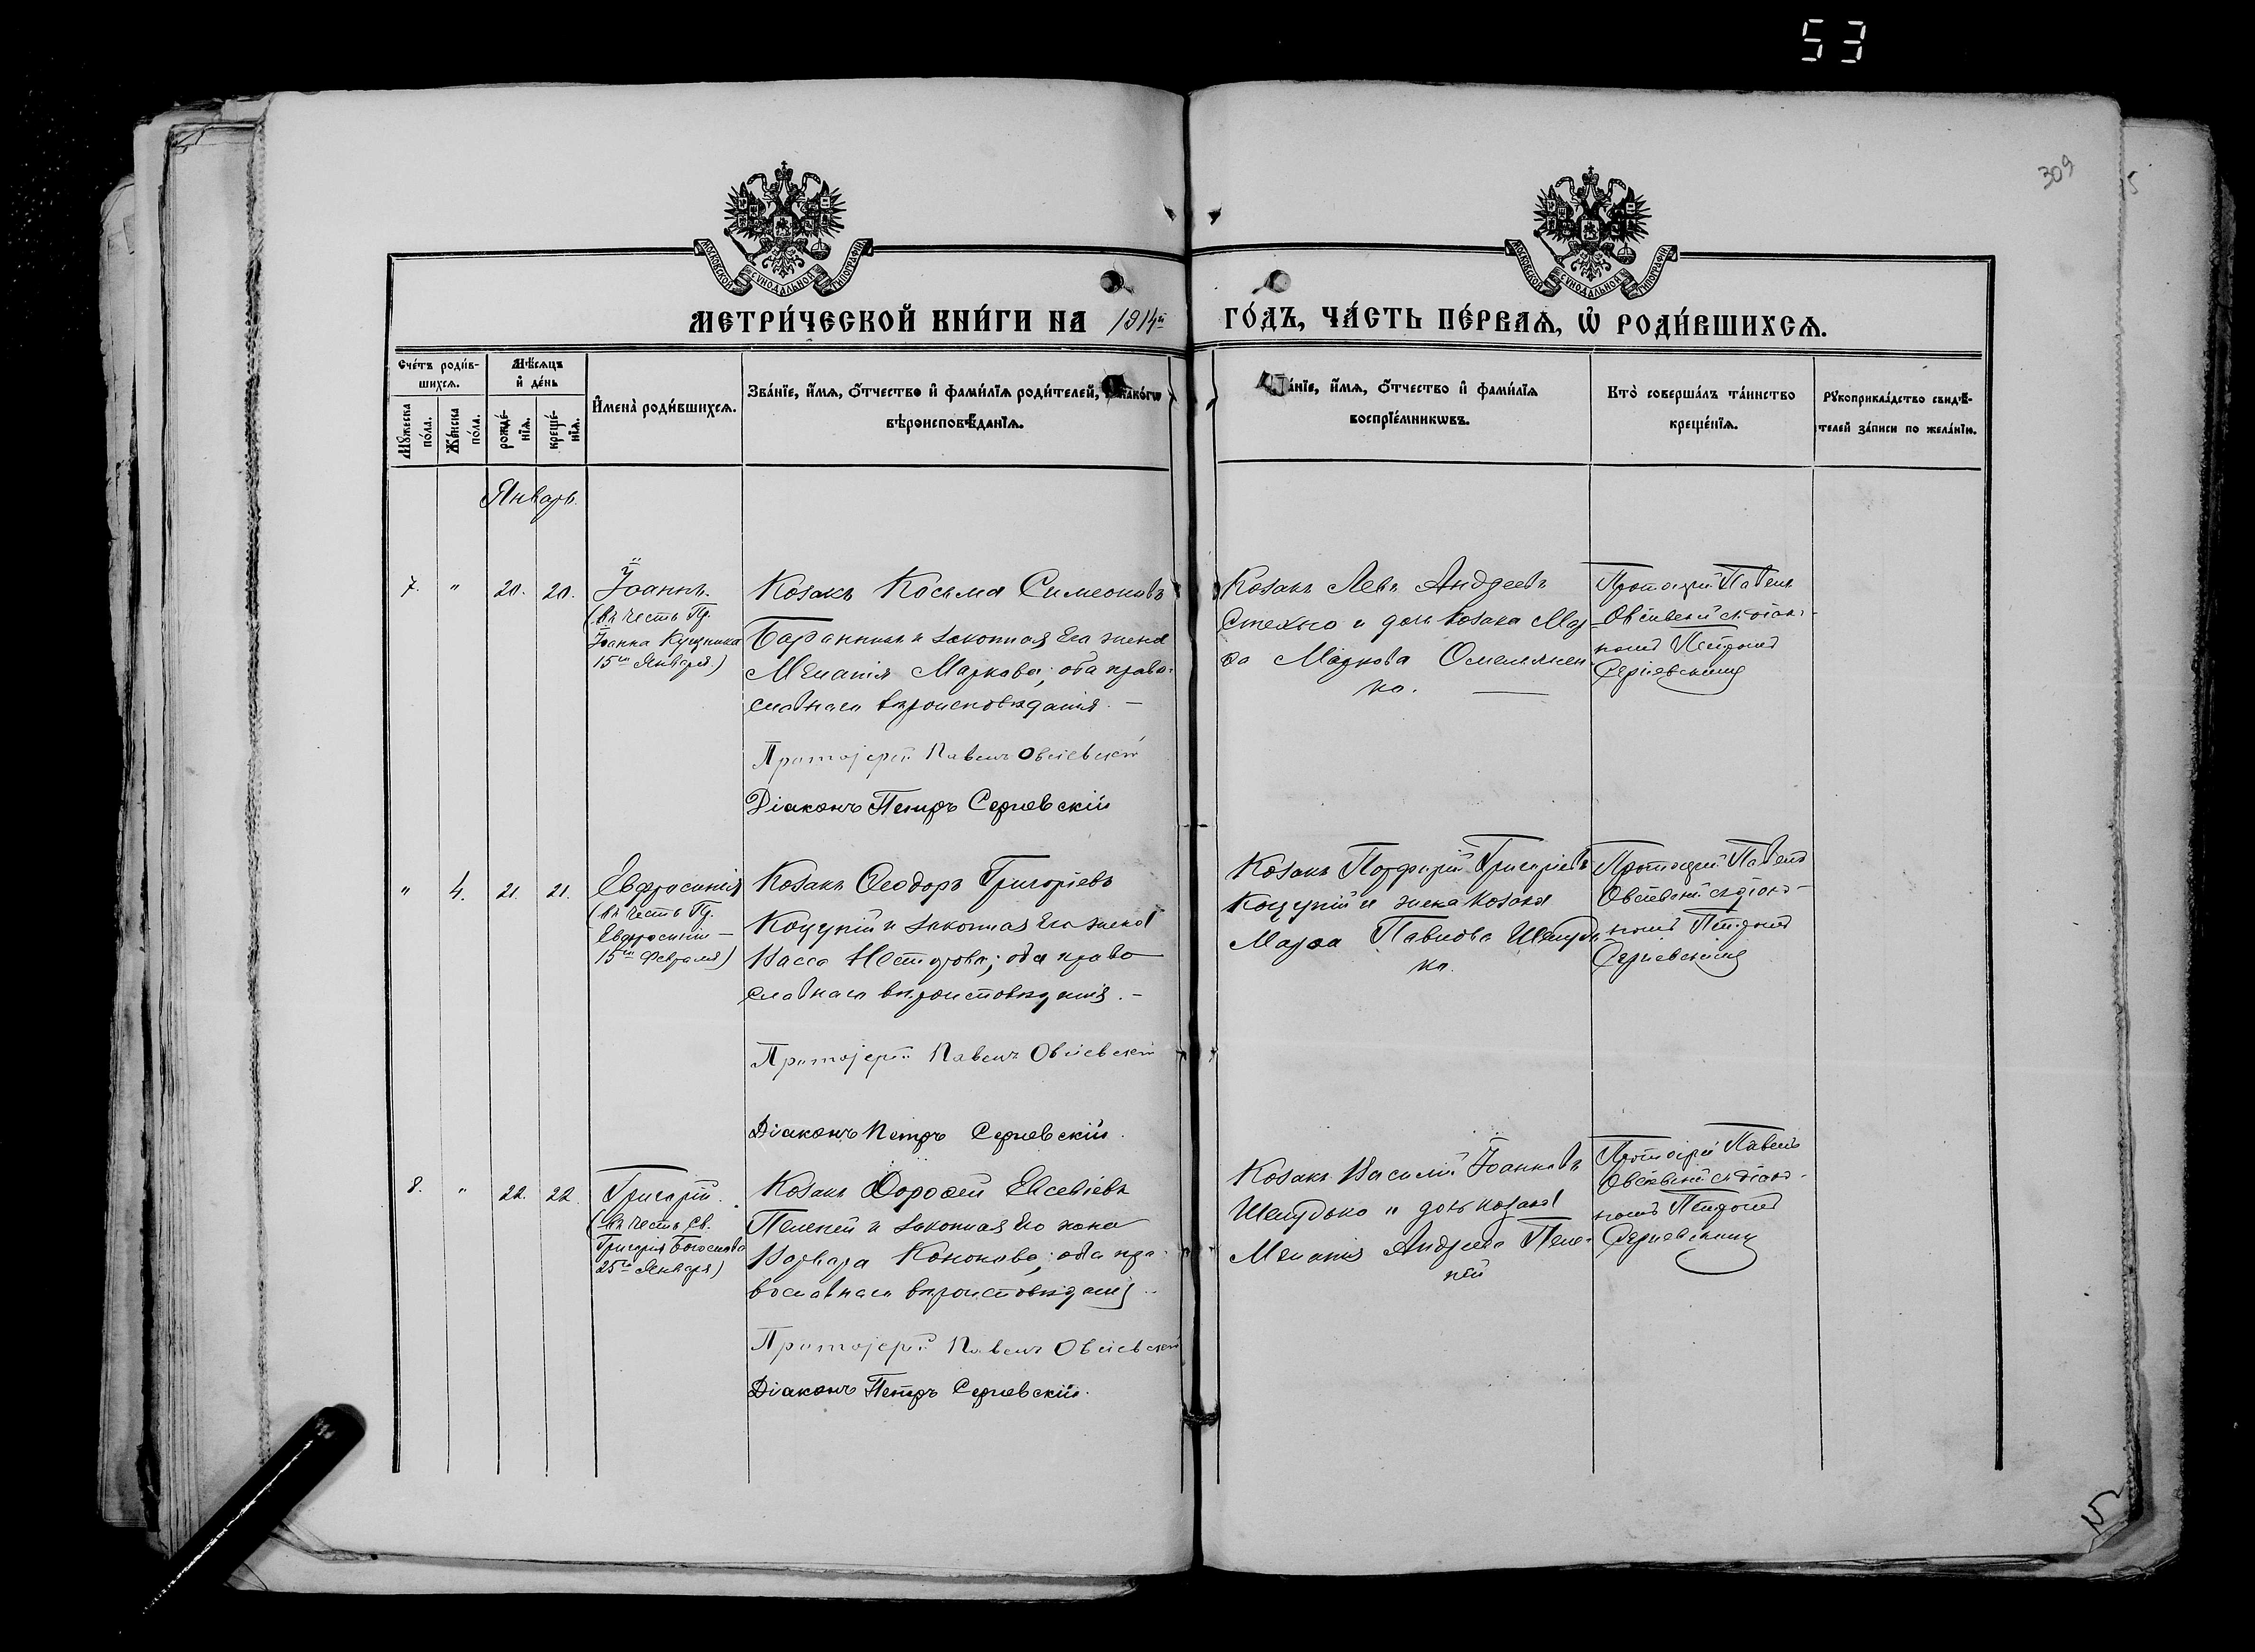 53
309
МОСКОВСКОЙ СѴНОДАЛЬНОЙ ТИПОГРАФІИ
МОСКОВСКОЙ СѴНОДАЛЬНОЙ ТИПОГРАФІИ
МЕТРИ́ЧЕСКОЙ КНИ́ГИ НА 1914й ГО́ДЪ, ЧА́СТЬ ПЕ́РВАѦ, Ѡ҆ РОДИ́ВШИХСѦ.
Сче́тъ роди́в-
шихсѧ.
Мѣ́сѧцъ
и҆ де́нь
Мꙋ́жеска
по́ла.
Же́нска
по́ла.
рожде́-
нїѧ.
креще́-
нїѧ.
И҆мена̀ роди́вшихсѧ.
Зва́нїе, и҆́мѧ, ѻ҆́тчество и҆ фами́лїѧ роди́телей,
вѣроисповѣ́данїѧ.
и҆́мѧ, ѻ҆́тчество и҆ фами́лїѧ
воспрїе́мникѡвъ.
Кто̀ соверша́лъ та́инство
креще́нїѧ.
Рꙋкоприкла́дство свидѣ́-
телей за́писи по жела́нїю.
Январь.
7. " 20. 20.
Іоаннъ.
(въ честь Пр.
Іоанна Кущника
15го Января)
Козакъ Косьма Симеоновъ
и законная его жена
Меланія Маркова; оба право-
славнаго вѣроисповѣданія. –
Протоіерей Павелъ Овсіевскій
Діаконъ Петръ Сергіевскій
Козакъ Левъ Андреевъ
Стехно и дочь козака
Маркова Омельчен-
ко.
Протоіерей Павелъ
Овсіевскій съ діако-
номъ Петромъ
Сергіевскимъ
" 4. 21. 21.
Евфросинія
(въ честь Пр.
Евфросиніи –
15го Февраля)
Козакъ Ѳеодоръ Григоріевъ
Коцупій и законная его жена
Васса Несторова; оба право
славнаго вѣроисповѣданія. –
Протоіерей Павелъ Овсіевскій
Діаконъ Петръ Сергіевскій.
Козакъ Порфирій Григоріевъ
Коцупій и жена козака
Марѳа Павлова
ко.
Протоіерей Павелъ
Овсіевскій съ діако-
номъ Петромъ
Сергіевскимъ
8. " 22. 22.
Григорій.
(въ честь Св.
Григорія Богослова
25го Января)
Козакъ Дороѳей Евсевіевъ
Пелепей и законная его жена
Варвара Кононова; оба пра-
вославнаго вѣроисповѣданія
Протоіерей Павелъ Овсіевскій
Діаконъ Петръ Сергіевскій.
Козакъ Василій Іоанновъ
Шепудько и дочь козака
Меланія Андреева Пеле-
пей
Протоіерей Павелъ
Овсіевскій съ діако-
номъ Петромъ
Сергіевскимъ